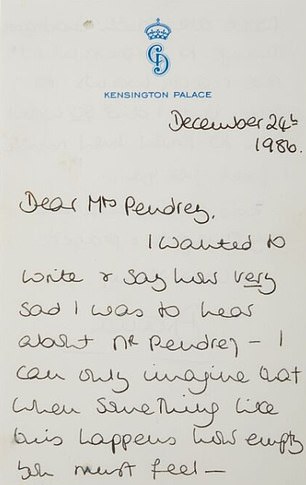 KENSINGTON PALACE
December 24th
1986.
Dear Mrs Pendrey,
I wanted to
write & say how very
sad I was to hear
about Mr Pendrey – I
can only imagine that
when something like
this happens how empty
you must feel –